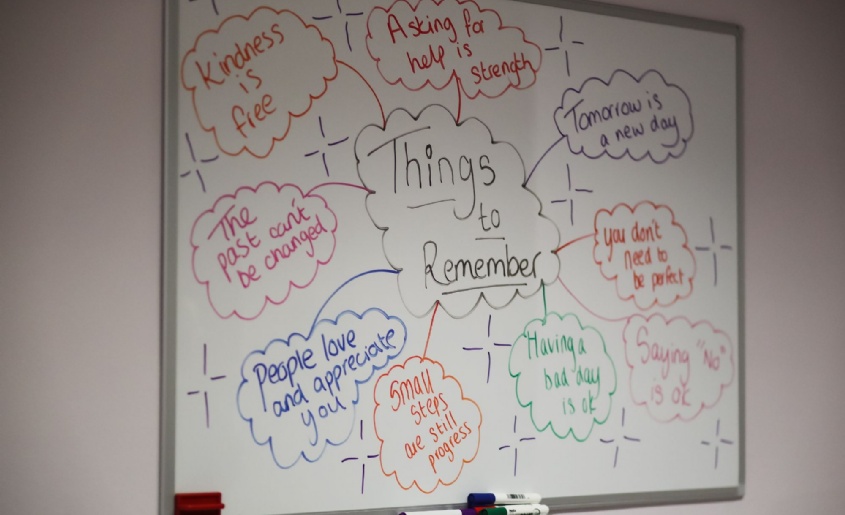 Things
to
Remember
Kindness
is
free
Asking for
help is
strength
Tomorrow is
a new day
you don't
need to
be perfect
Saying "No"
is ok
Having a
bad day
is ok
Small
steps
are still
progress
People love
and appreciate
you
The
past can't
be changed